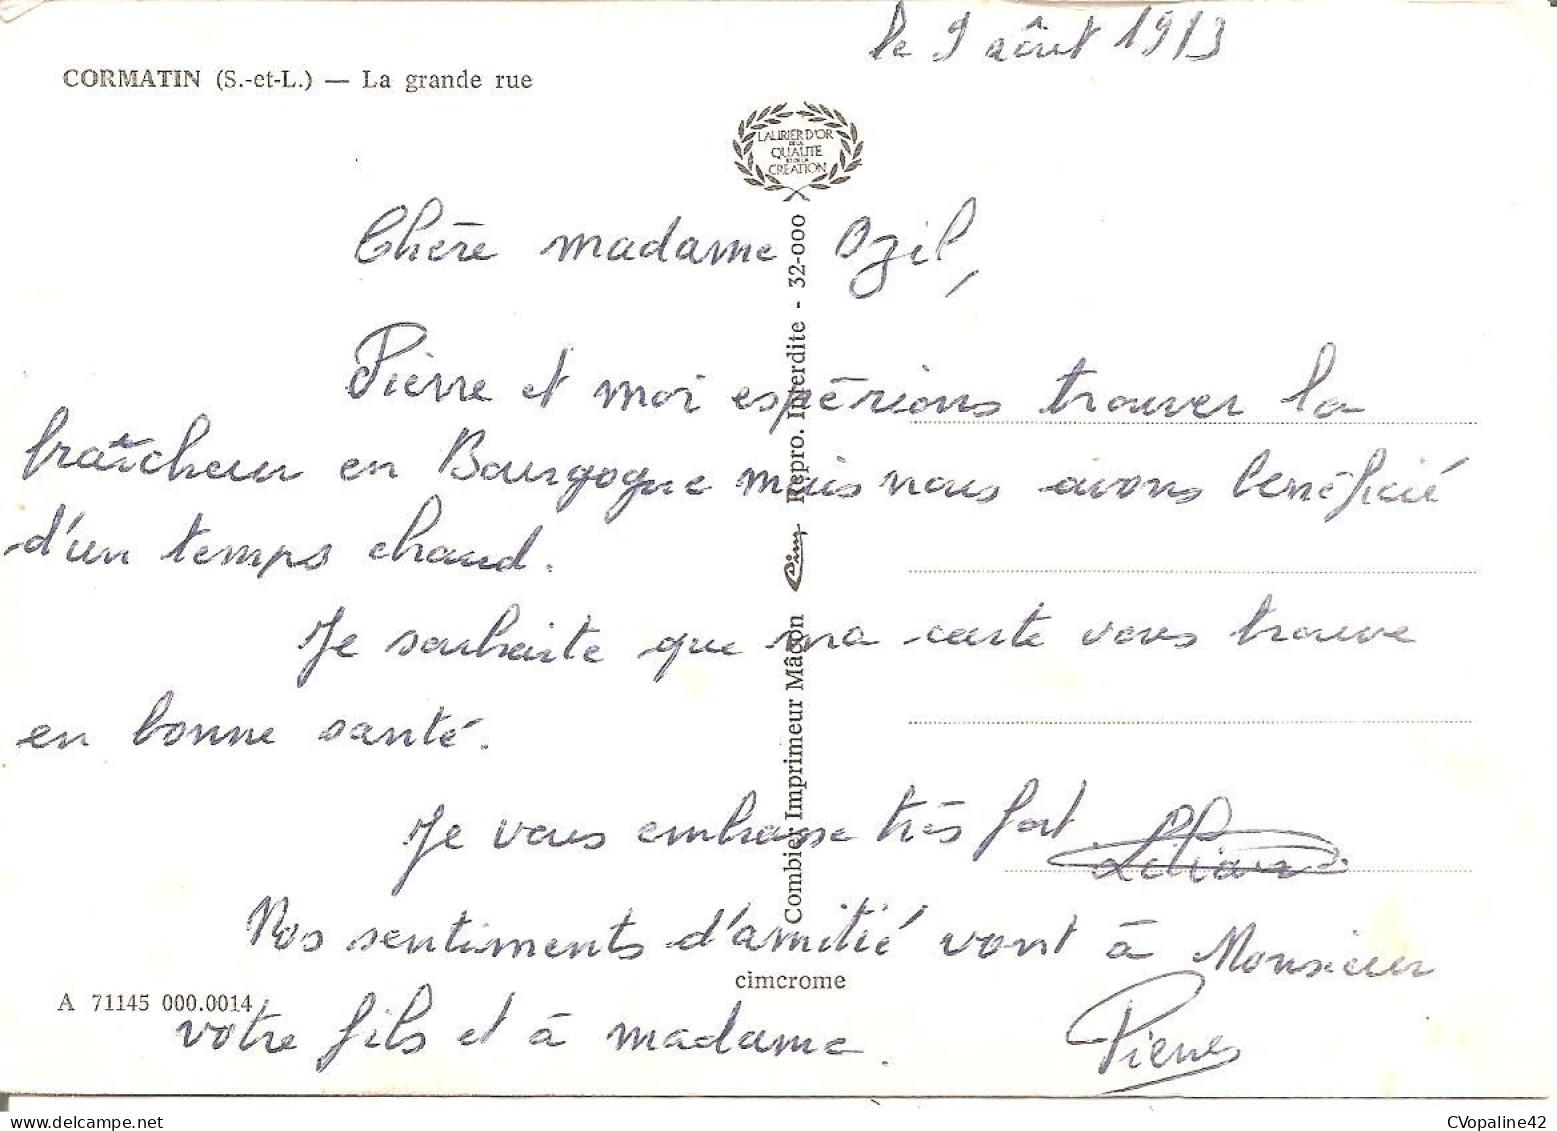 le 9 août 1973
CORMATIN (S.-et-L.) — La grande rue
LAURIER D'OR
DE LA
QUALITE
ET DE LA
CREATION
Chère madame Ozil,
Pierre et moi espérions trouver la
fraîcheur en Bourgogne mais nous avons bénéficié
d'un temps chaud.
Je souhaite que ma carte vous trouve
en bonne santé.
Je vous embrasse très fort
Liliane
Nos sentiments d'amitié vont à Monsieur
votre fils et à madame.
Pierre
Combier Imprimeur Mâcon Cim Repro. Interdite - 32-000
cimcrome
A 71145 000.0014
CVopaline42